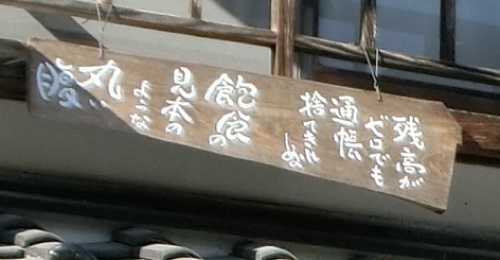 残高が
ゼロでも
通帳
捨てきれ
しぬ
飽食の
見本の
ような
丸い
腹